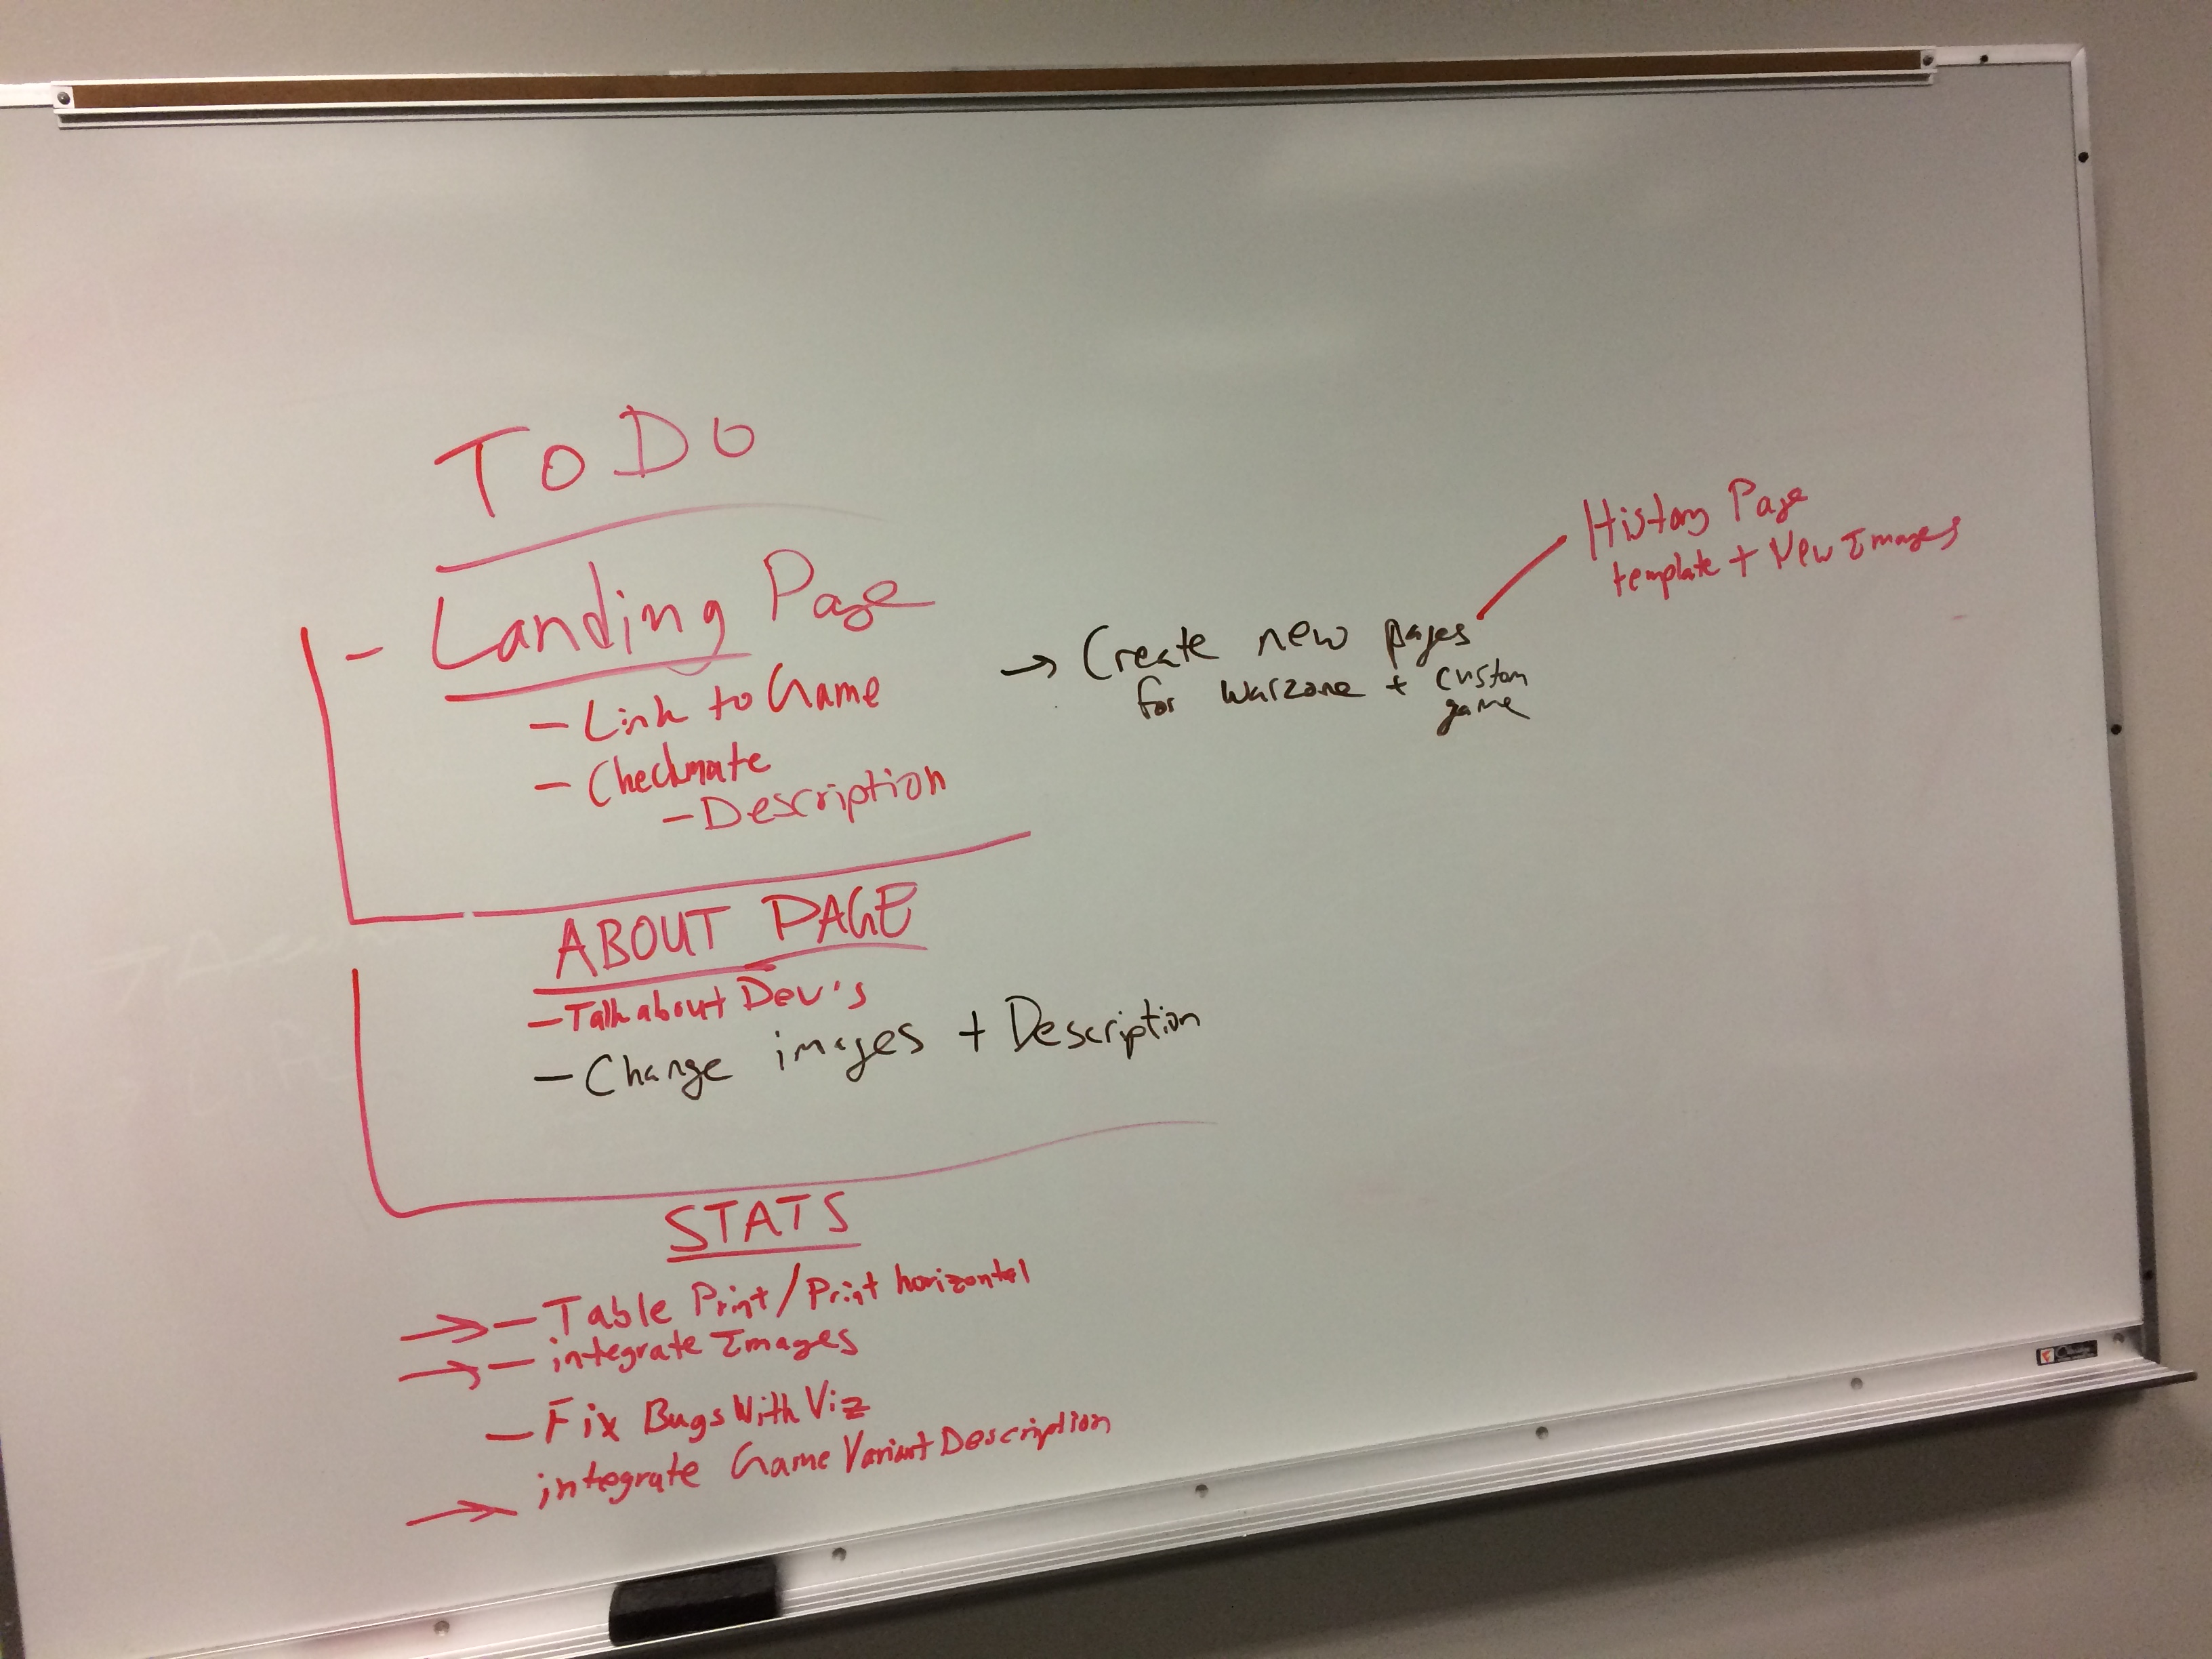 To Do
- Landing Page
- Link to Game
- Checkmate
- Description
→ Create new pages
for warzone + custom
game
History Page
template + New Images
ABOUT PAGE
- Talk about Dev's
- Change images + Description
STATS
→ - Table Print/Print horizontal
→ - integrate Images
- Fix Bugs With Viz
→ integrate Game Variant Description